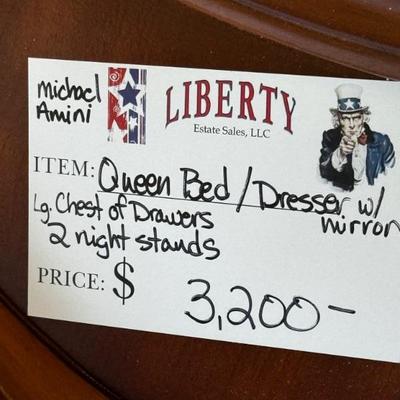 michael
Amini
LIBERTY
Estate Sales, LLC
ITEM: Queen Bed / Dresser w/
mirror
Lg. Chest of Drawers
2 night stands
PRICE: $ 3,200-